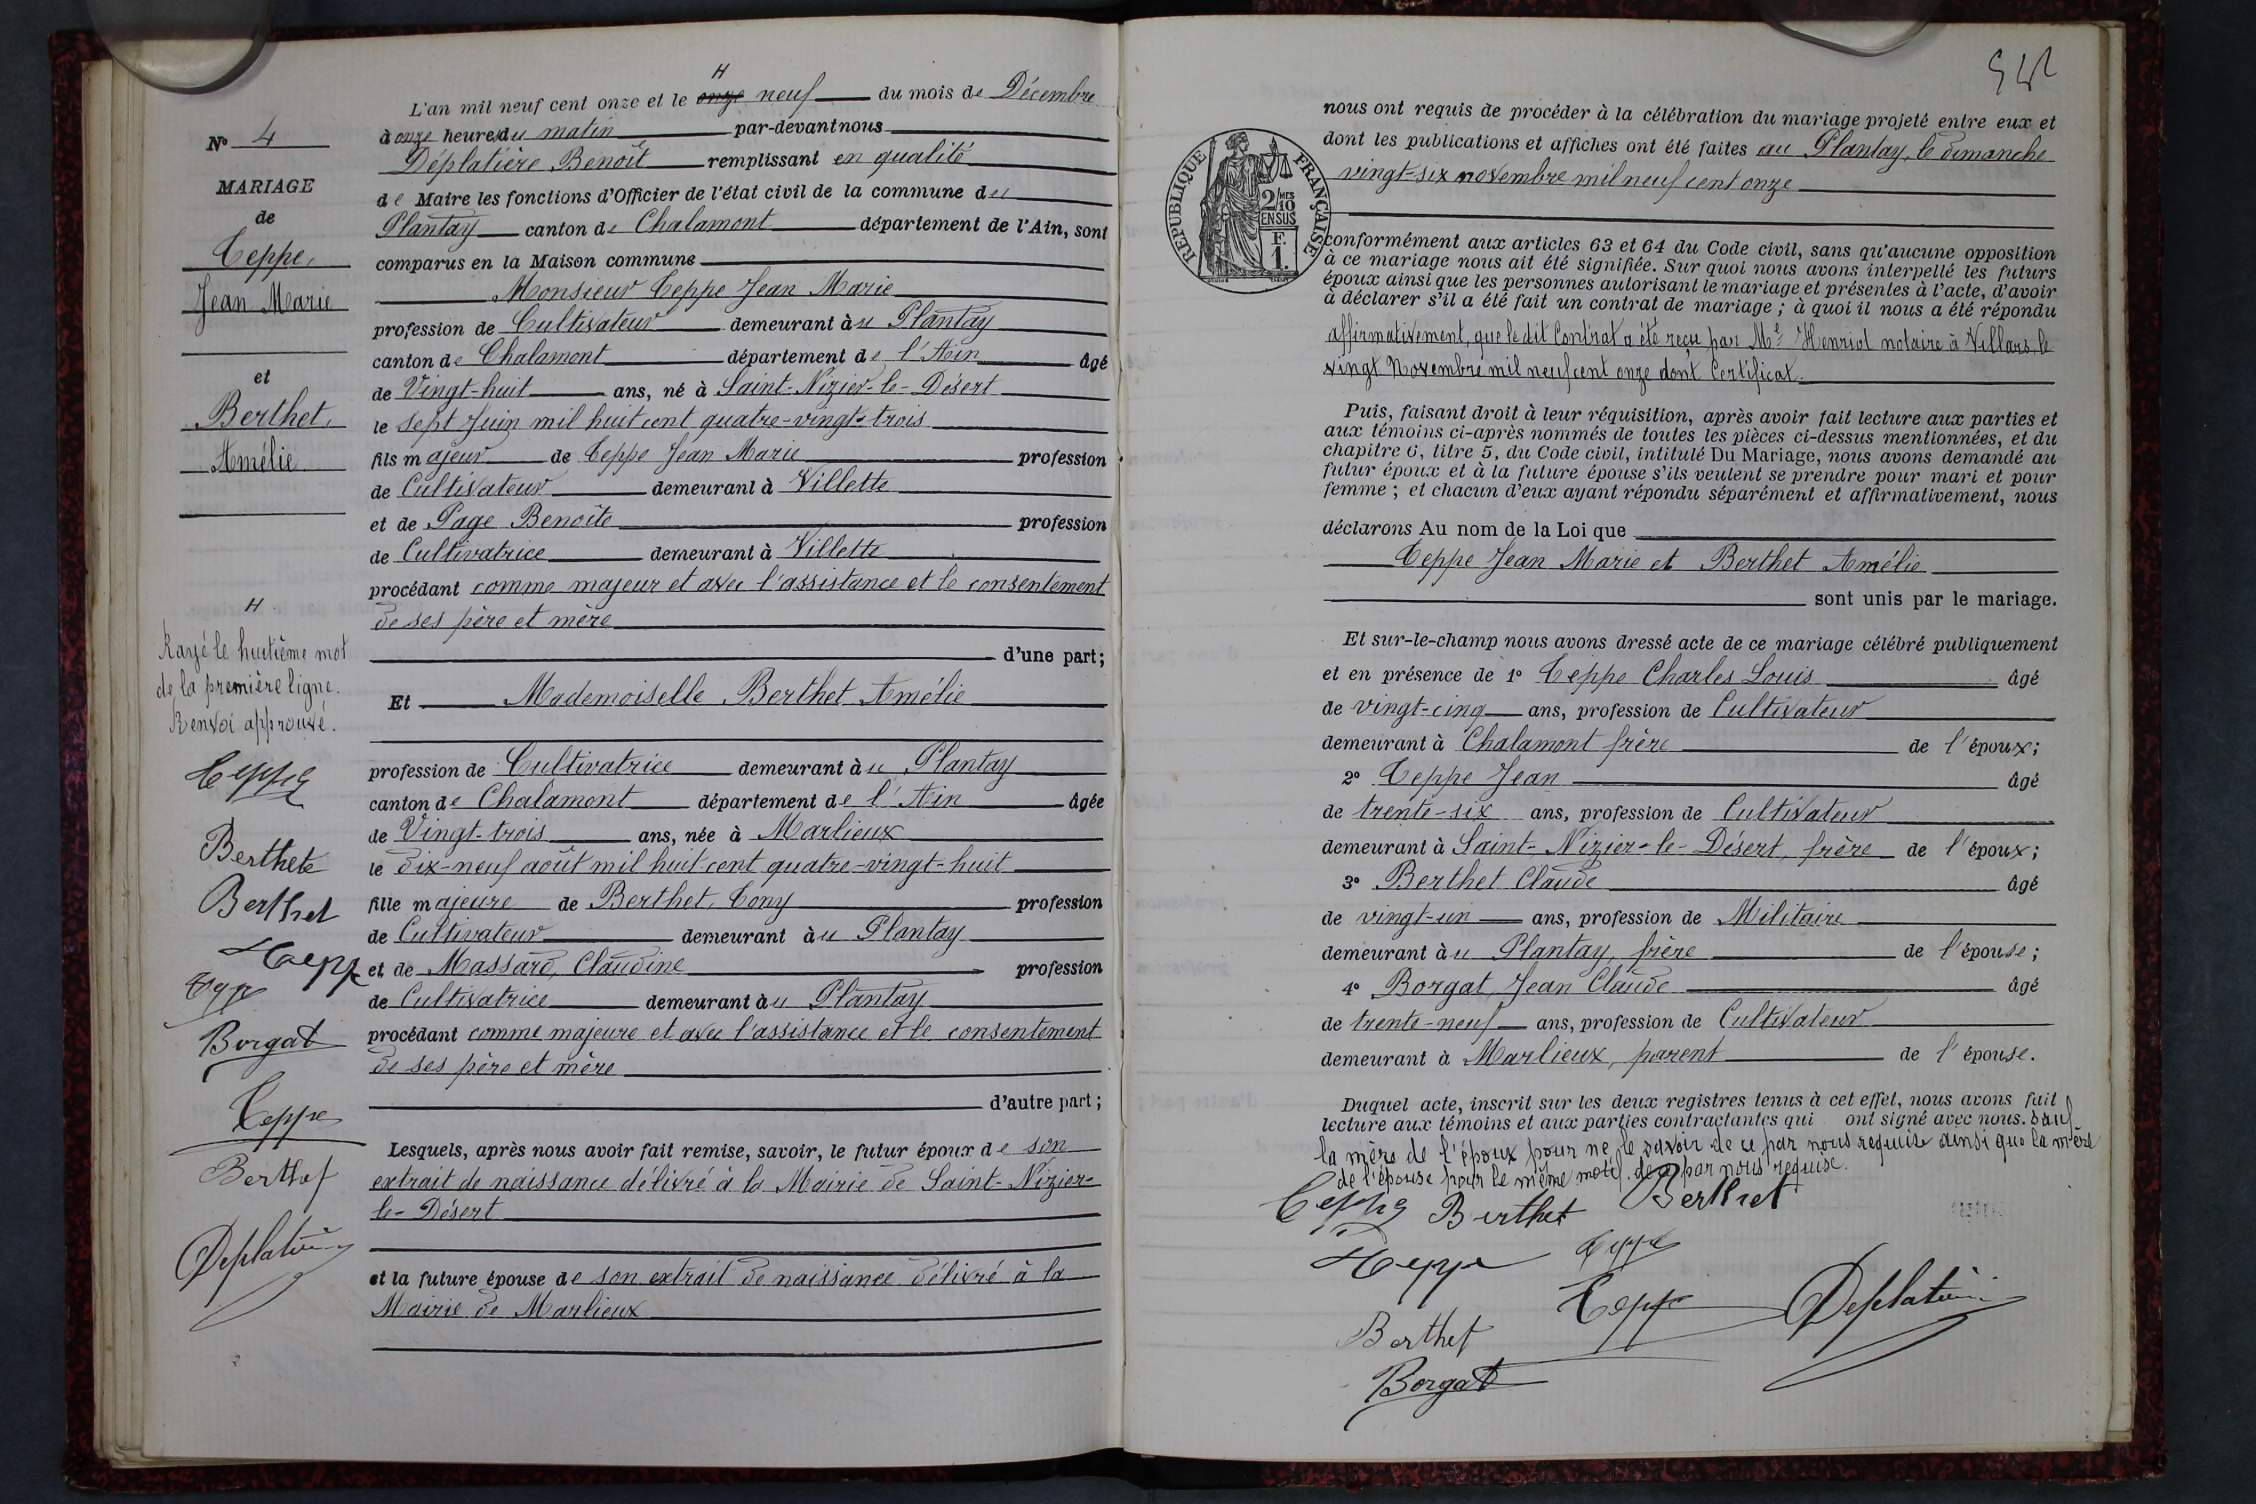 L'an mil neuf cent onze et le onze neuf du mois de Décembre
à onze heures du matin par-devant nous
Déplatière Benoît remplissant en qualité
de Maire les fonctions d'Officier de l'état civil de la commune du
Plantay canton de Chalamont département de l'Ain, sont
comparus en la Maison commune
Monsieur Teppe Jean Marie
profession de Cultivateur demeurant au Plantay
canton de Chalamont département de l'Ain âgé
de Vingt-huit ans, né à Saint-Nizier-le-Désert
le sept Juin mil huit cent quatre-vingt-trois
fils majeur de Teppe Jean Marie profession
de Cultivateur demeurant à Villette
et de Page Benoîte profession
de Cultivatrice demeurant à Villette
procédant comme majeur et avec l'assistance et le consentement
de ses père et mère
d'une part;
Et Mademoiselle Berthet Amélie
profession de Cultivatrice demeurant au Plantay
canton de Chalamont département de l'Ain âgée
de Vingt-trois ans, née à Marlieux
le dix-neuf août mil huit cent quatre-vingt-huit
fille majeure de Berthet, Tony profession
de Cultivateur demeurant au Plantay
et de Massard, Claudine profession
de Cultivatrice demeurant au Plantay
procédant comme majeure et avec l'assistance et le consentement
de ses père et mère
d'autre part;
Lesquels, après nous avoir fait remise, savoir, le futur époux de son
extrait de naissance délivré à la Mairie de Saint-Nizier-
le-Désert
et la future épouse de son extrait de naissance délivré à la
Mairie de Marlieux
No 4
MARIAGE
de
Teppe,
Jean Marie
et
Berthet,
Amélie
H
Rayé le huitième mot
de la première ligne.
Renvoi approuvé.
Teppe
Berthet
Berthet
Teppe
Teppe
Borgat
Teppe
Berthet
Deplatière
nous ont requis de procéder à la célébration du mariage projeté entre eux et
dont les publications et affiches ont été faites au Plantay, le dimanche
vingt-six novembre mil neuf cent onze
RÉPUBLIQUE FRANÇAISE
2/10 MES
EN SUS
F.
1.
conformément aux articles 63 et 64 du Code civil, sans qu'aucune opposition
à ce mariage nous ait été signifiée. Sur quoi nous avons interpellé les futurs
époux ainsi que les personnes autorisant le mariage et présentes à l'acte, d'avoir
à déclarer s'il a été fait un contrat de mariage; à quoi il nous a été répondu
affirmativement, que le dit Contrat a été reçu par Me Henriot notaire à Villars, le
vingt Novembre mil neuf cent onze dont Certificat.
Puis, faisant droit à leur réquisition, après avoir fait lecture aux parties et
aux témoins ci-après nommés de toutes les pièces ci-dessus mentionnées, et du
chapitre 6, titre 5, du Code civil, intitulé Du Mariage, nous avons demandé au
futur époux et à la future épouse s'ils veulent se prendre pour mari et pour
femme; et chacun d'eux ayant répondu séparément et affirmativement, nous
déclarons Au nom de la Loi que
Teppe Jean Marie et Berthet Amélie
sont unis par le mariage.
Et sur-le-champ nous avons dressé acte de ce mariage célébré publiquement
et en présence de 1° Teppe Charles Louis âgé
de vingt-cinq ans, profession de Cultivateur
demeurant à Chalamont frère de l'époux;
2° Teppe Jean âgé
de trente-six ans, profession de Cultivateur
demeurant à Saint-Nizier-le-Désert, frère de l'époux;
3° Berthet Claude âgé
de vingt-un ans, profession de Militaire
demeurant au Plantay, frère de l'épouse;
4° Borgat, Jean Claude âgé
de trente-neuf ans, profession de Cultivateur
demeurant à Marlieux, parent de l'épouse.
Duquel acte, inscrit sur les deux registres tenus à cet effet, nous avons fait
lecture aux témoins et aux parties contractantes qui ont signé avec nous. sauf
la mère de l'époux pour ne le savoir de ce par nous requise ainsi que la mère
de l'épouse pour le même motif de par nous requise.
Teppe Berthet Berthet
Teppe Teppe
Teppe Deplatière
Berthet
Borgat